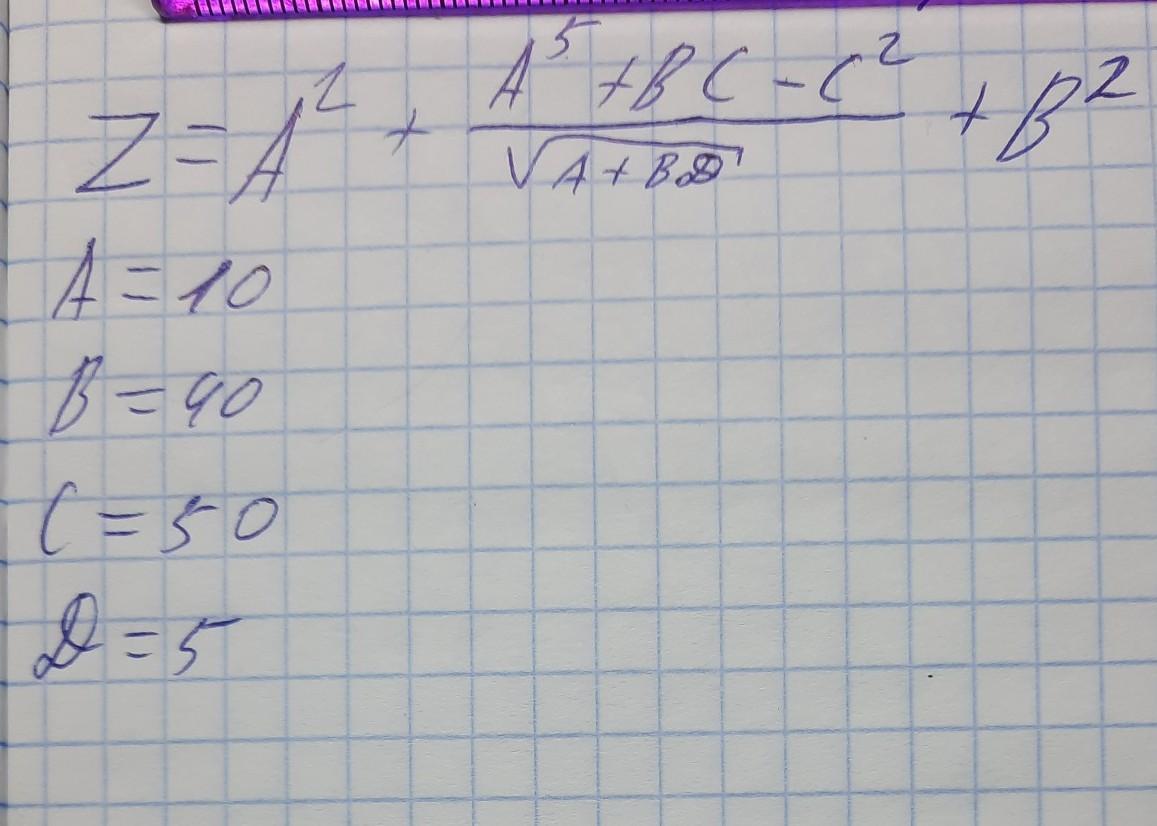 Z = A² + (A⁵ + BC - C²) / √(A + BD) + B²
A = 10
B = 40
C = 50
D = 5